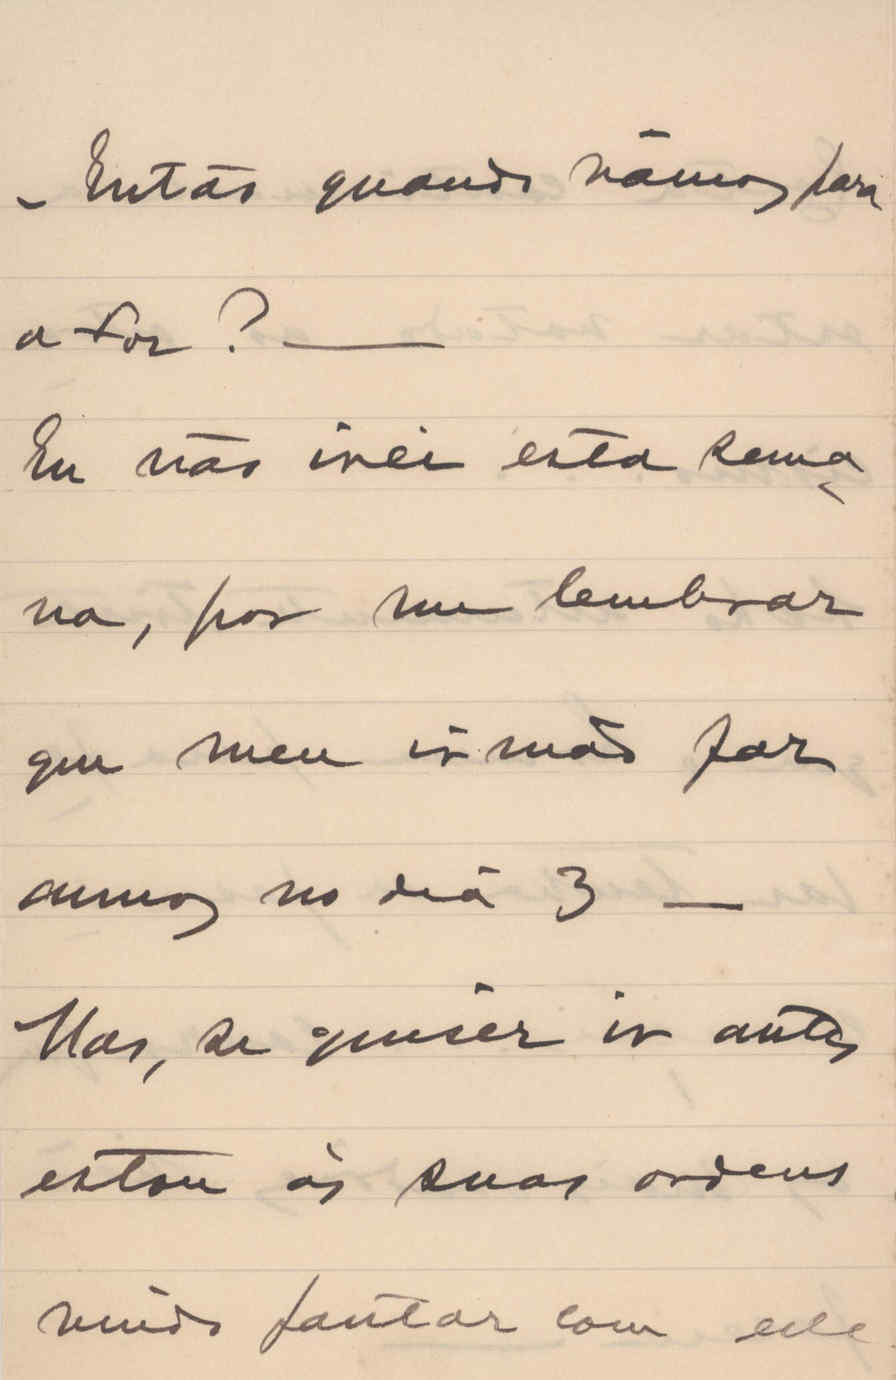 - Então quando vâmos para
a Foz? —
Eu não irei esta sema
na, por me lembrar
que meu irmão faz
annos no dia 3 —
Mas, se quiser ir antes
estou ás suas ordens
vindo jantar com este